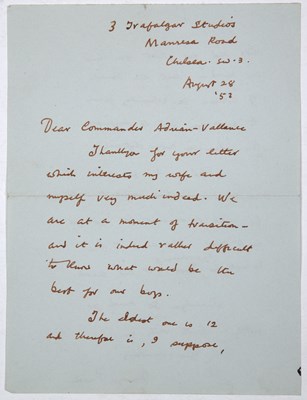 3 Trafalgar Studios
Manresa Road
Chelsea. SW.3.
August 28
'52
Dear Commander Adrian-Vallance
Thankyou for your letter
which interests my wife and
myself very much indeed. We
are at a moment of transition -
and it is indeed rather difficult
to know what would be the
best for our boys.
The eldest one is 12
and therefore is, I suppose,